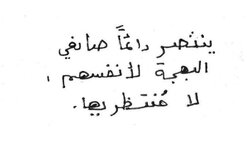 ينتصر دائمًا صانعي
البهجة لأنفسهم ،
لا مُنتظريها.